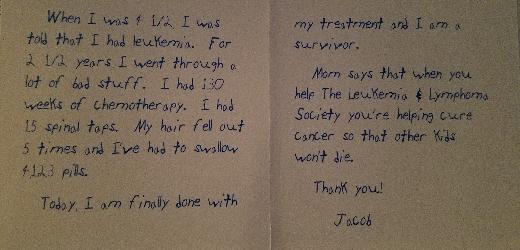 When I was 4 1/2 I was
told that I had leukemia. For
2 1/2 years I went through a
lot of bad stuff. I had 130
weeks of chemotherapy. I had
15 spinal taps. My hair fell out
5 times and I've had to swallow
4,123 pills.
Today, I am finally done with
my treatment and I am a
survivor.
Mom says that when you
help The Leukemia & Lymphoma
Society you're helping cure
cancer so that other kids
won't die.
Thank you!
Jacob